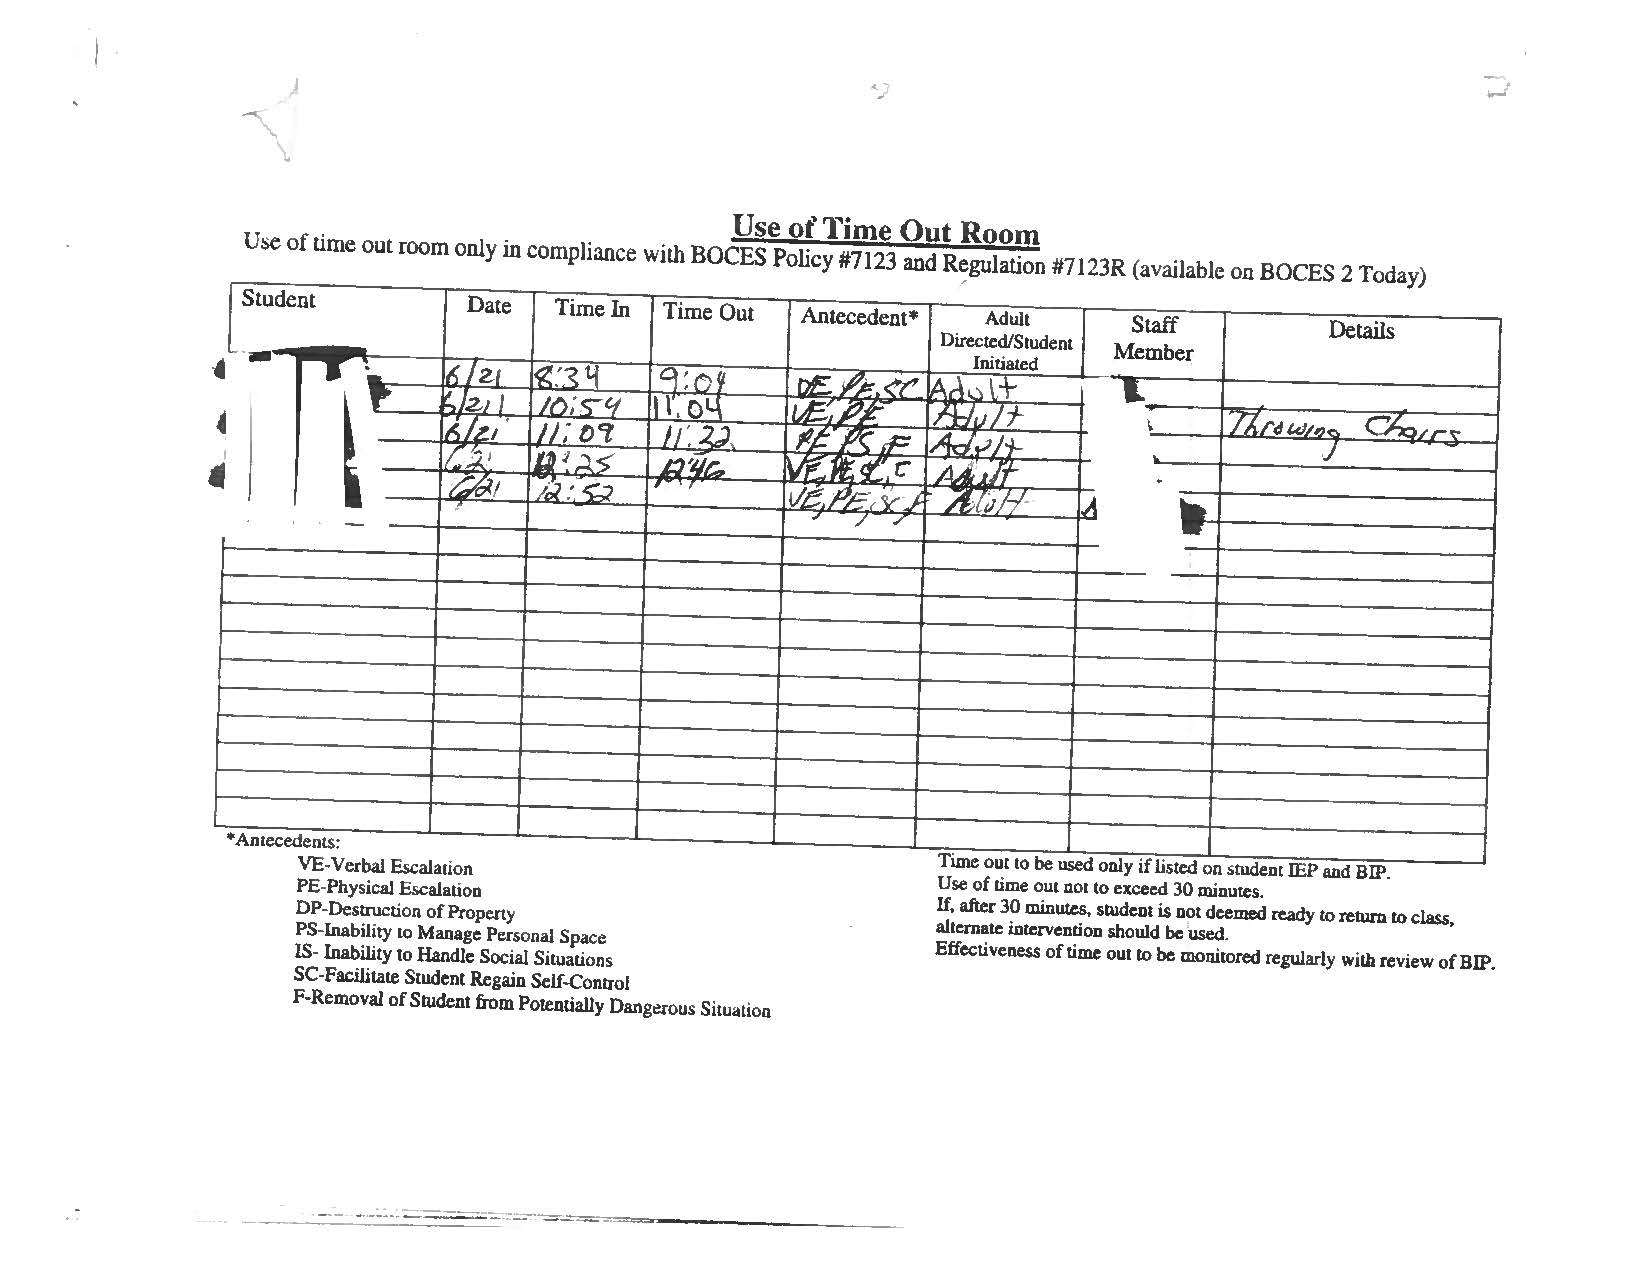 Use of Time Out Room
Use of time out room only in compliance with BOCES Policy #7123 and Regulation #7123R (available on BOCES 2 Today)
Student Date Time In Time Out Antecedent* Adult Directed/Student Initiated Staff Member Details
6/21 8:34 9:04 VE, PE, SC Adult
6/21 10:54 11:04 VE, PE Adult
6/21 11:09 11:32 PE PS F Adult Throwing Chairs
6/21 12:25 1246 VE, PE, Adult
6/21 12:52 VE, PE, SC F Adult
*Antecedents:
VE-Verbal Escalation
PE-Physical Escalation
DP-Destruction of Property
PS-Inability to Manage Personal Space
IS- Inability to Handle Social Situations
SC-Facilitate Student Regain Self-Control
F-Removal of Student from Potentially Dangerous Situation
Time out to be used only if listed on student IEP and BIP.
Use of time out not to exceed 30 minutes.
If, after 30 minutes, student is not deemed ready to return to class,
alternate intervention should be used.
Effectiveness of time out to be monitored regularly with review of BIP.